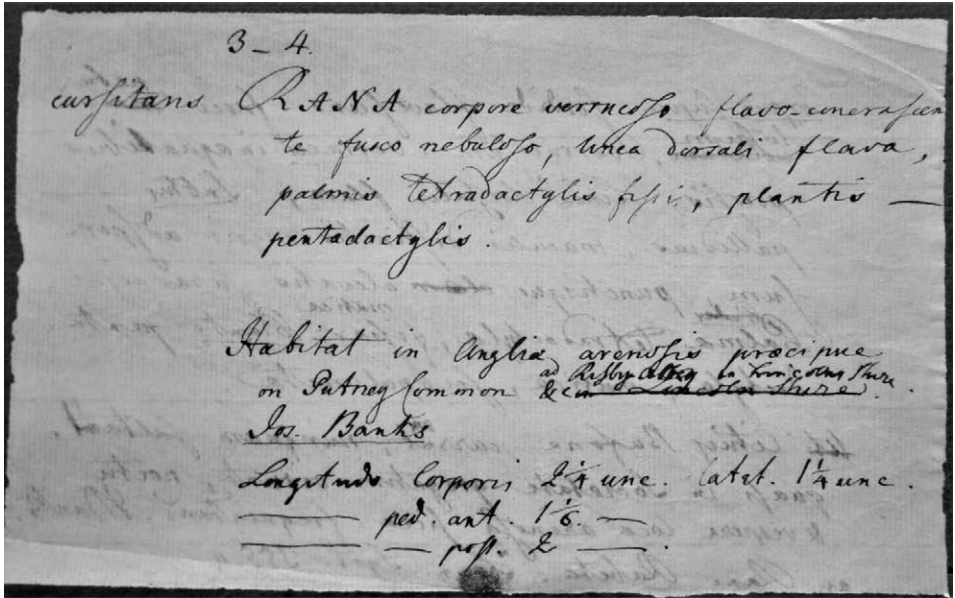 3 – 4.
cursitans RANA corpore verrucoso flavo-cinerascen
te fusco nebuloso, linea dorsali flava,
palmis tetradactylis fissis, plantis —
pentadactylis.
Habitat in Angliæ arenosis præcipue
ad Risby in Lincoln Shire.
on Putney Common &c in Lincoln Shire.
Jos. Banks
Longitudo Corporis 2 1/4 unc. Latit. 1 1/4 unc.
——— ped. ant. 1 1/6. —
——— — poss. 2 — .